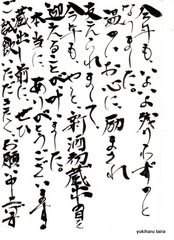 今年も、いよいよ残りわずかと
なりました。
温かい心に励まされ
支えられまして
今年も、やっと、新酒初蔵出の日を
迎えることが叶いました
本当に、ありがとうございます
蔵出し前に、ぜひ
ご試飲いただきたく、お願い申し上げます
yukiharu taira